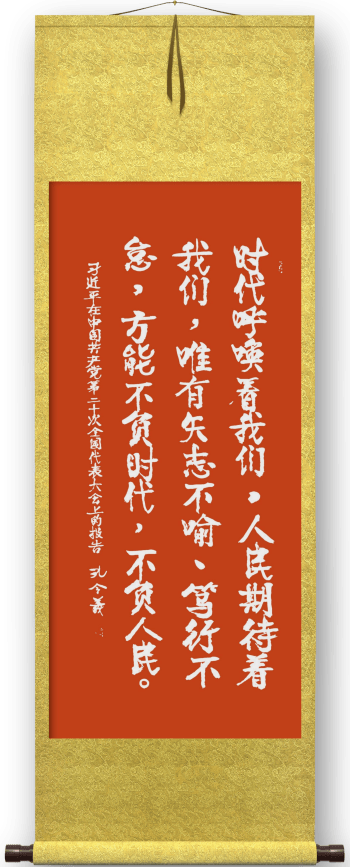 时代呼唤着我们，人民期待着
我们，唯有矢志不喻、笃行不
怠，方能不负时代，不负人民。
习近平在中国共产党第二十次全国代表大会上的报告 孔令義